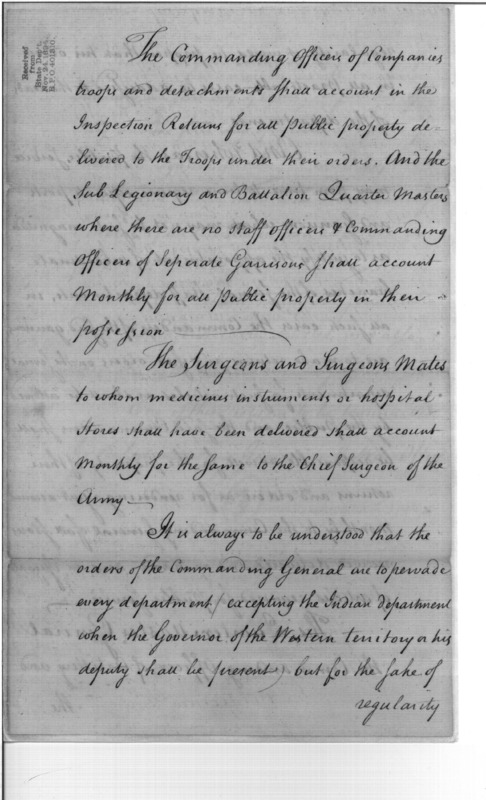 Received
from
State Dept.
Nov. 24, 1894.
The Commanding Officers of Companies
troops and detachments shall account in the
Inspection Returns for all public property de=
livered to the Troops under their orders. And the
Sub Legionary and Battalion Quarter Masters
where there are no staff officers & Commanding
Officers of Seperate Garrisons shall account
Monthly for all public property in their
possession
The Surgeons and Surgeons Mates
to whom medicines instruments or hospital
Stores shall have been delivered shall account
Monthly for the same to the Chief Surgeon of the
Army
It is always to be understood that the
orders of the Commanding General are to pervade
every department (excepting the Indian department
when the Governor of the Western territory or his
deputy shall be present) but for the sake of
regularity